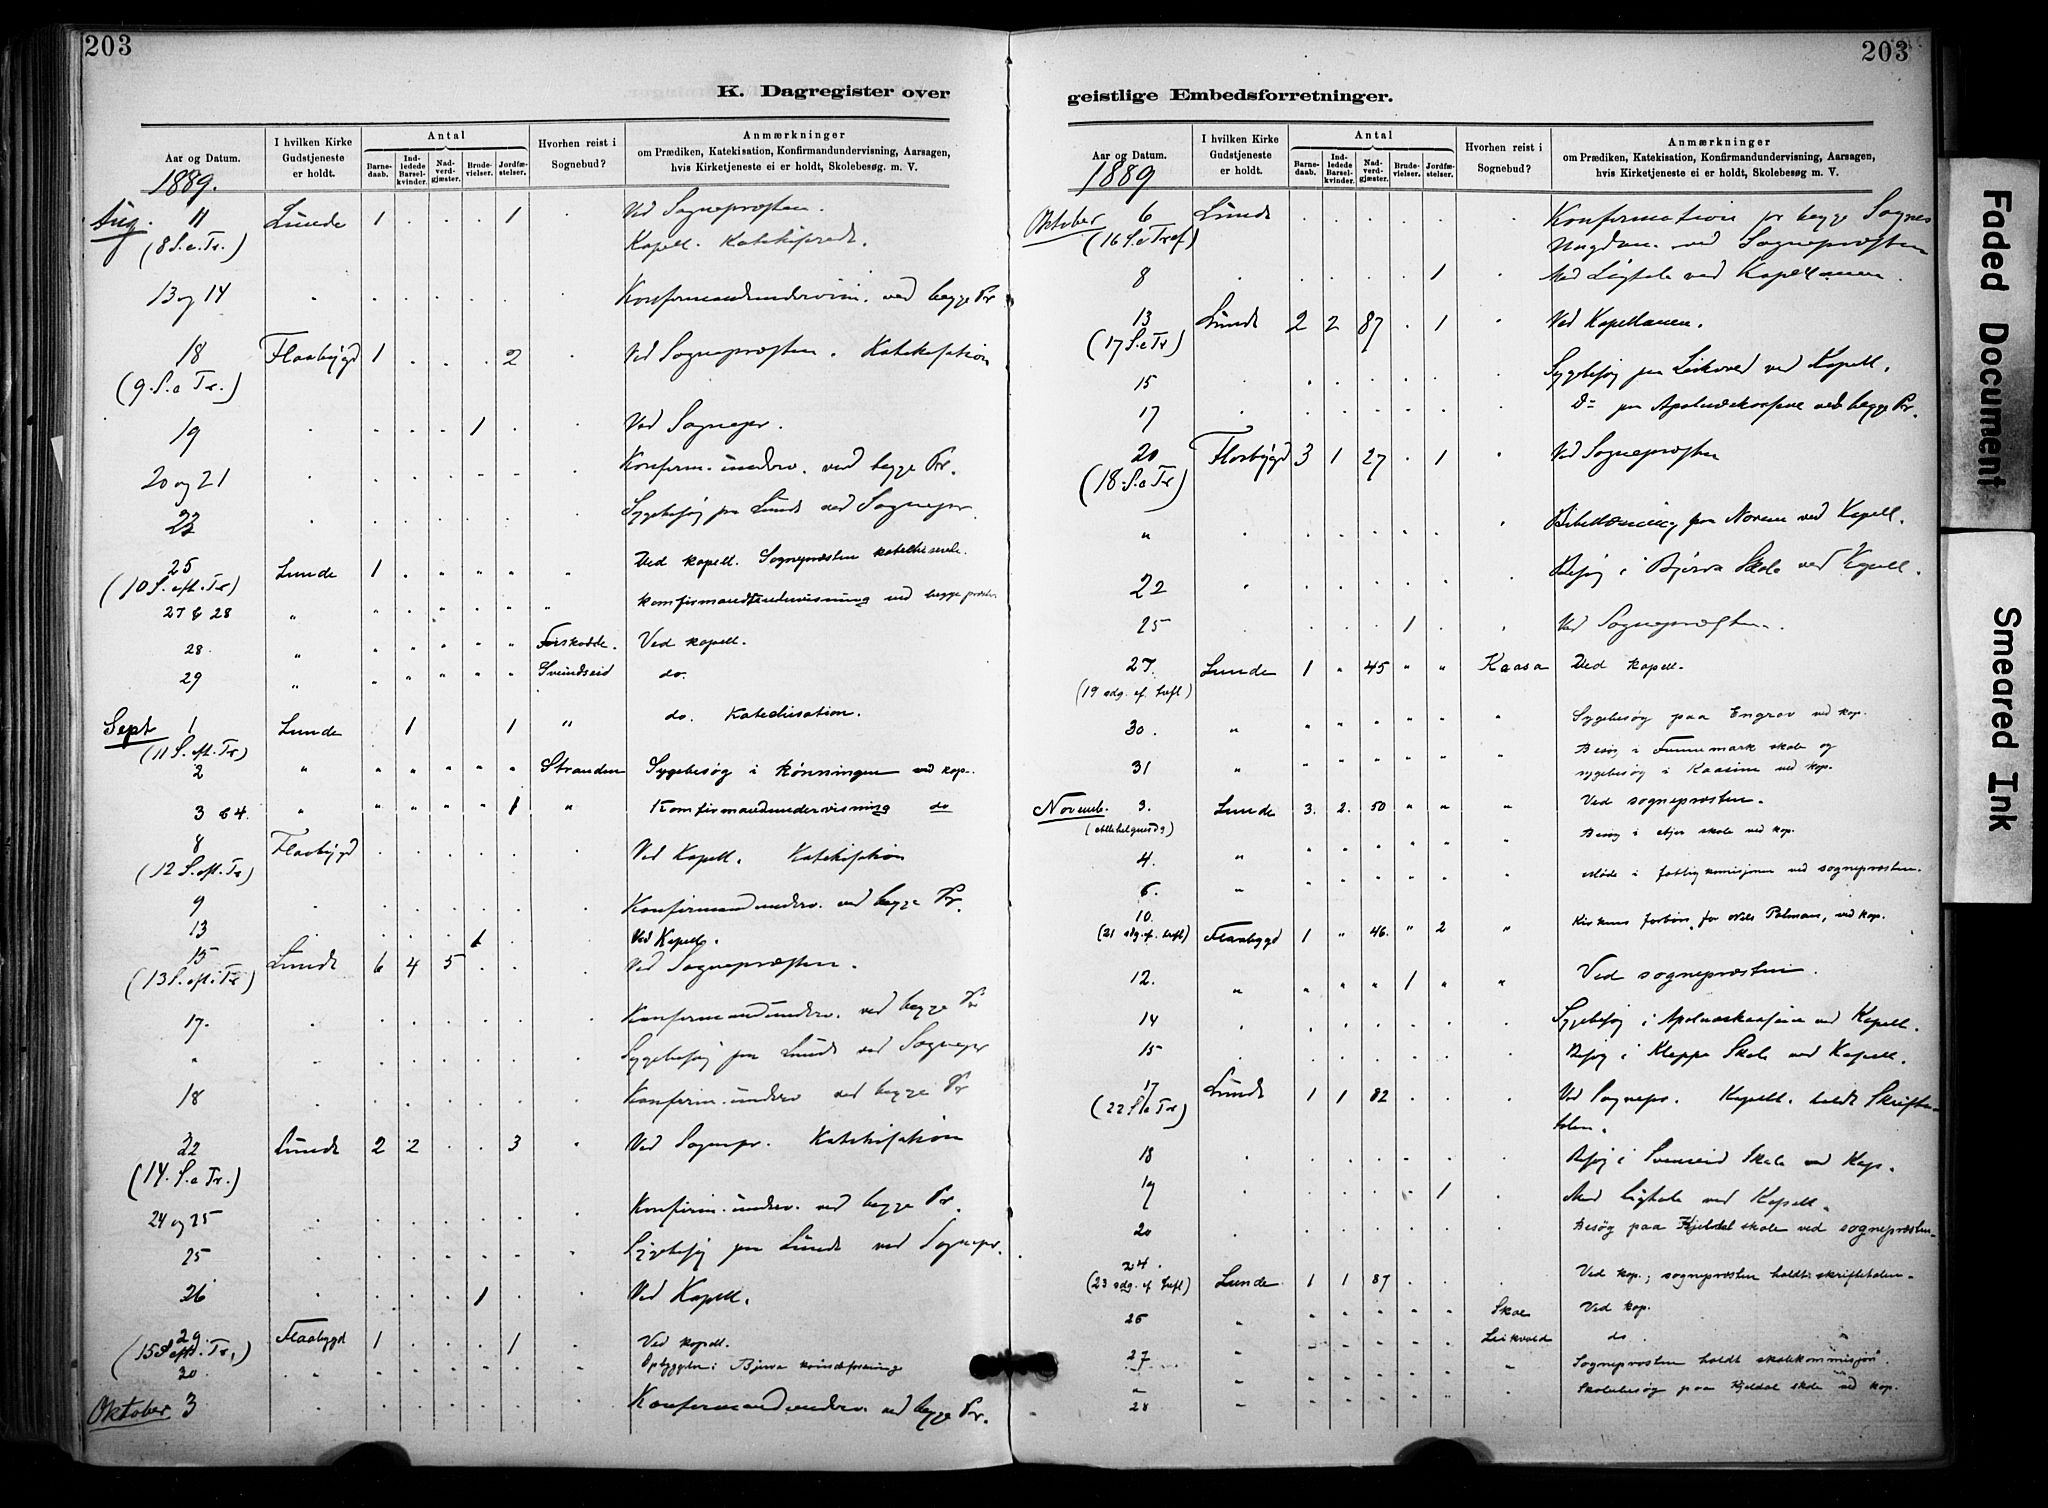 203
203
K. Dagregister over
geistlige Embedsforretninger.
Aar og Datum.
I hvilken Kirke Gudstjeneste er holdt.
Antal
Barnedaab.
Indledede Barselkvinder.
Nadverdgjæster.
Brudevielser.
Jordfæstelser.
Hvorhen reist i Sognebud?
Anmærkninger
om Prædiken, Katekisation, Konfirmandundervisning, Aarsagen,
hvis Kirketjeneste ei er holdt, Skolebesøg m. V.
1889.
Aug. 11 Lunde 1 . . . 1 . Ved Sognepræsten.
(8 S. e Tr.) Kapell. Katekiserede.
13 og 14 Konfirmandundervisn. ved begge Pr
18 Flaabygd 1 . . . 2 . Ved Sognepræsten. Katekisation
(9. S. e Tr.)
19 . . . . 1 . . Ved Sognepr.
20 og 21 Konfirm. underv. ved begge Pr.
22 Sygebesøg paa Lunde ved Sognepr.
25 Lunde 1 . " " " " Ved kapell. Sognepræsten katekiserede.
(10 S. eft. Tr)
27 & 28 " Konfirmandundervisning ved begge præster
28. " Forskodde. Ved kapell.
29 " Sveindseid do.
Sept 1 Lunde 1 1 " do. Katechisation.
(11 S. eft. Tr)
2 " " " " " " Stranden Sygebesøg i Rønningen ved kap.
3 & 4. " " " " " 1 " Konfirmandundervisning do
8 Flaabygd Ved Kapell. Katekisation
(12 S. eft. Tr)
9 Konfirmandunderv. ved begge Pr.
13 1 Ved Kapell.
15 Lunde 6 4 5 . . . Ved Sognepræsten.
(13 S. eft. Tr)
17. Konfirmandunderv. ved begge Pr
" Sygebesøg paa Lunde ved Sognepr
18 Konfirm. underv ved begge Pr
22 Lunde 2 2 . . 3 . Ved Sognepr. Katekisation
(14. S. e Tr.)
24 og 25 Konfirm. underv. ved begge Pr.
25 Sygebesøg paa Lunde ved Sognepr.
26 1 Ved Kapell.
29. Flaabygd 1 . . . 1 . Ved kapell.
(15 S eft. Tr.)
30 " Opbyggelse i Bjerva kvindeforening
Oktober 3 Konfirmandunderv. ved begge Pr.
Aar og Datum.
I hvilken Kirke Gudstjeneste er holdt.
Antal
Barnedaab.
Indledede Barselkvinder.
Nadverdgjæster.
Brudevielser.
Jordfæstelser.
Hvorhen reist i Sognebud?
Anmærkninger
om Prædiken, Katekisation, Konfirmandundervisning, Aarsagen,
hvis Kirketjeneste ei er holdt, Skolebesøg m. V.
1889
Oktober 6 Lunde Konfirmation for begge Sognes
(16 S. e Tref) Ungdom ved Sognepræsten
8 1 Med Ligtale ved Kapellanen.
13 Lunde 2 2 87 . 1 " Ved Kapellanen.
(17 S. e Tr)
15 Sygebesøg paa Leikvold ved Kapell.
17 Do paa ved begge Pr.
20 Flaabygd 3 1 27 . 1 " Ved Sognepræsten
(18. S. e Tr)
" Bibellæsning paa Norem ved Kapell.
22 Besøg i Bjerva Skole ved Kapell.
25 1 Ved Sognepræsten.
27. Lunde 1 " 45 " " Kaasa Ved kapell.
(19 sdg. ef. tref)
30. " Sygebesøg paa Engrav ved kap.
31 " Besøg i Funnemark skole og
sygebesøg i Kaasine ved kap.
Novemb. 3. Lunde 3. 2. 50 " " " Ved sognepræsten.
(Allehelgensdg)
4. " Besøg i skole ved kap.
6. " Møde i fattigkomisjonen ved sognepræsten.
10. Kirkens forbøn for Nils ved kap.
(21 sdg. ef. tref) Flaabygd 1 " 46. " 2 "
12. " " " " 1 " " Ved sognepræsten.
14 Sygebesøg i ved Kapell.
15 Besøg i Kleppe Skole ved Kapell.
17 Lunde 1 1 82 . . . Ved Sognepr. Kapell. holdt Skrifte-
(22 S. e Tr) talen.
18 Besøg i Svenseid Skole ved Kap.
19 1 Med ligtale ved Kapell.
20 Besøg paa Kjeldal skole ved sognepræsten
24.
(23 sdg. ef. tref) Lunde 1 1 87 . . . Ved kap.; sognepræsten holdt skriftetalen.
26 " Skoe Ved kap.
27 Leikvold do.
" " Sognepræsten holdt skolekommisjon.
28 " Skolebesøg paa Kjeldal skole ved kap.
Faded Document
Smeared Ink